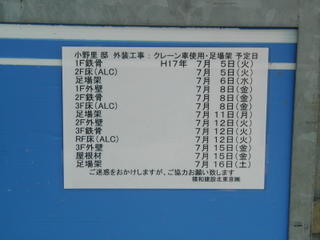 小野里 邸 外装工事：クレーン車使用・足場架 予定日
1F鉄骨 H17年 7月 5日(火)
2F床(ALC) 7月 5日(火)
足場架 7月 6日(水)
1F外壁 7月 8日(金)
2F鉄骨 7月 8日(金)
3F床(ALC) 7月 8日(金)
足場架 7月11日(月)
2F外壁 7月12日(火)
3F鉄骨 7月12日(火)
RF床(ALC) 7月12日(火)
3F外壁 7月15日(金)
屋根材 7月15日(金)
足場架 7月16日(土)
ご迷惑をおかけしますが、ご協力お願い致します